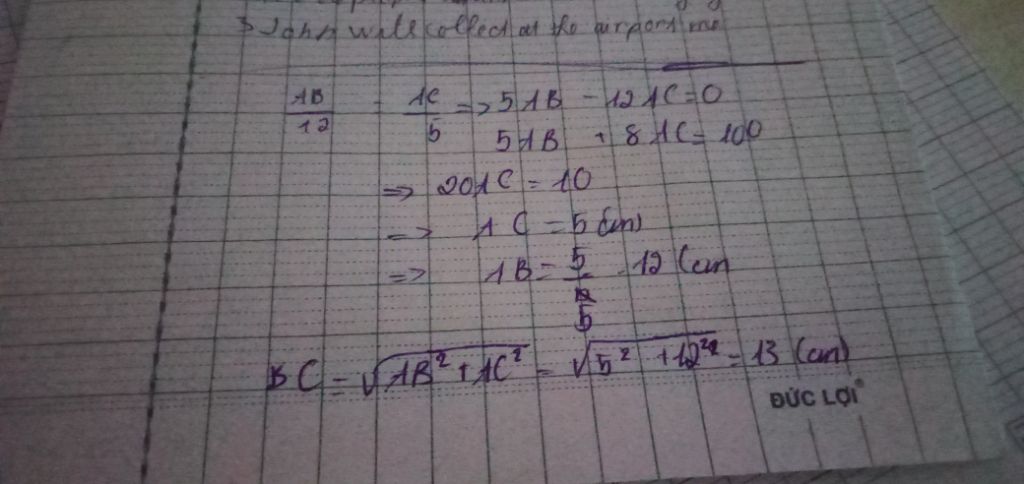 John will collect at the airport me
AB/12 = AC/5 => 5AB - 12AC = 0
5AB + 8AC = 100
=> 20AC = 10
=> AC = 5 (cm)
=> AB = 5/5 . 12 (cm
BC = √AB² + AC² = √5² + 12² = 13 (cm)
ĐỨC LỢI